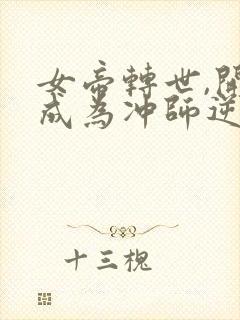 女帝轉世,
成為冲師逆
十三槐